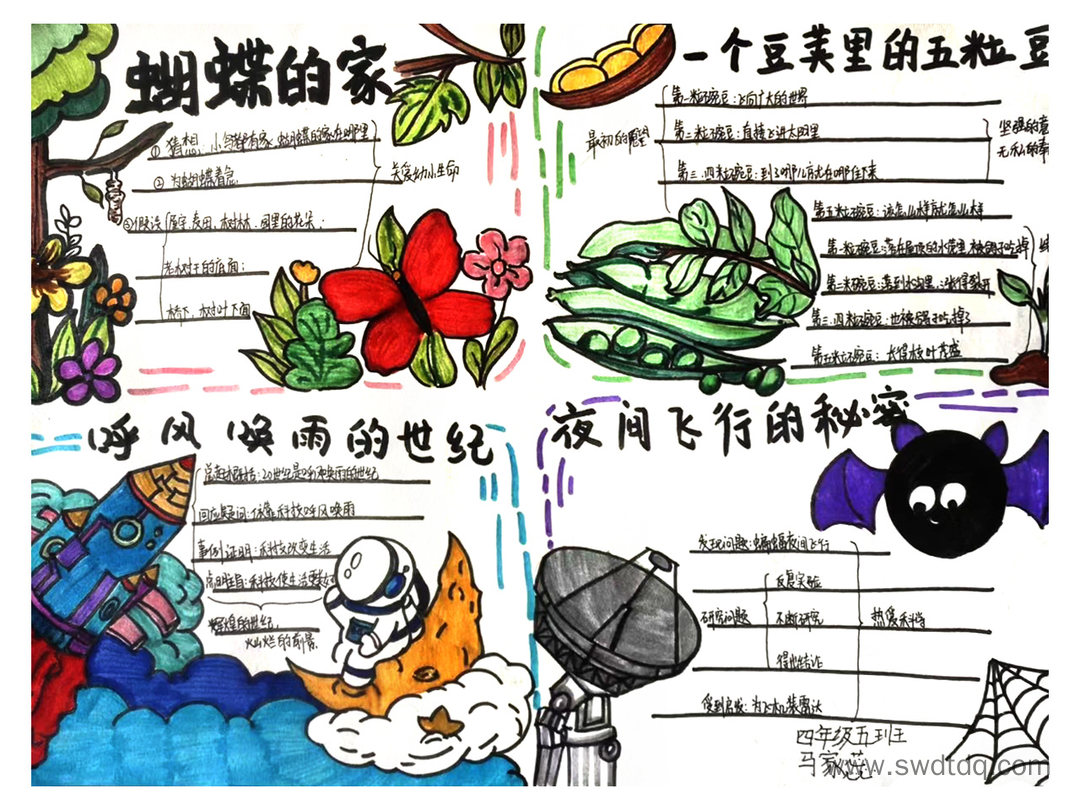 蝴蝶的家
①猜想：小鸟都有家，蝴蝶的家在哪里
②为蝴蝶着急
关爱幼小生命
③假设
屋宇、麦田、树林、园里的花朵：
桥下、树叶下面
一个豆荚里的五粒豆
最初的愿望
第一粒豌豆：飞向广大的世界
第二粒豌豆：直接飞进太阳里
第三、四粒豌豆：到了哪儿就在哪住下来
第五粒豌豆：该怎么样就怎么样
坚强的意
第一粒豌豆：落在屋顶的水管里被鸽子吃掉
第二粒豌豆：落到水沟里，涨得裂开
第三、四粒豌豆：也被鸽子吃掉了
第五粒豌豆：长得枝叶茂盛
呼风唤雨的世纪
总起概括：20世纪是呼风唤雨的世纪
回应疑问：依靠科技呼风唤雨
事例证明：科技改变生活
点明主旨：科技使生活更美好
辉煌的世纪，
灿烂的前景
夜间飞行的秘密
发现问题：蝙蝠夜间飞行
研究问题
反复实验
不断研究
得出结论
热爱科学
受到启发：为飞机装雷达
四年级五班
马家
www.swdtdq.com